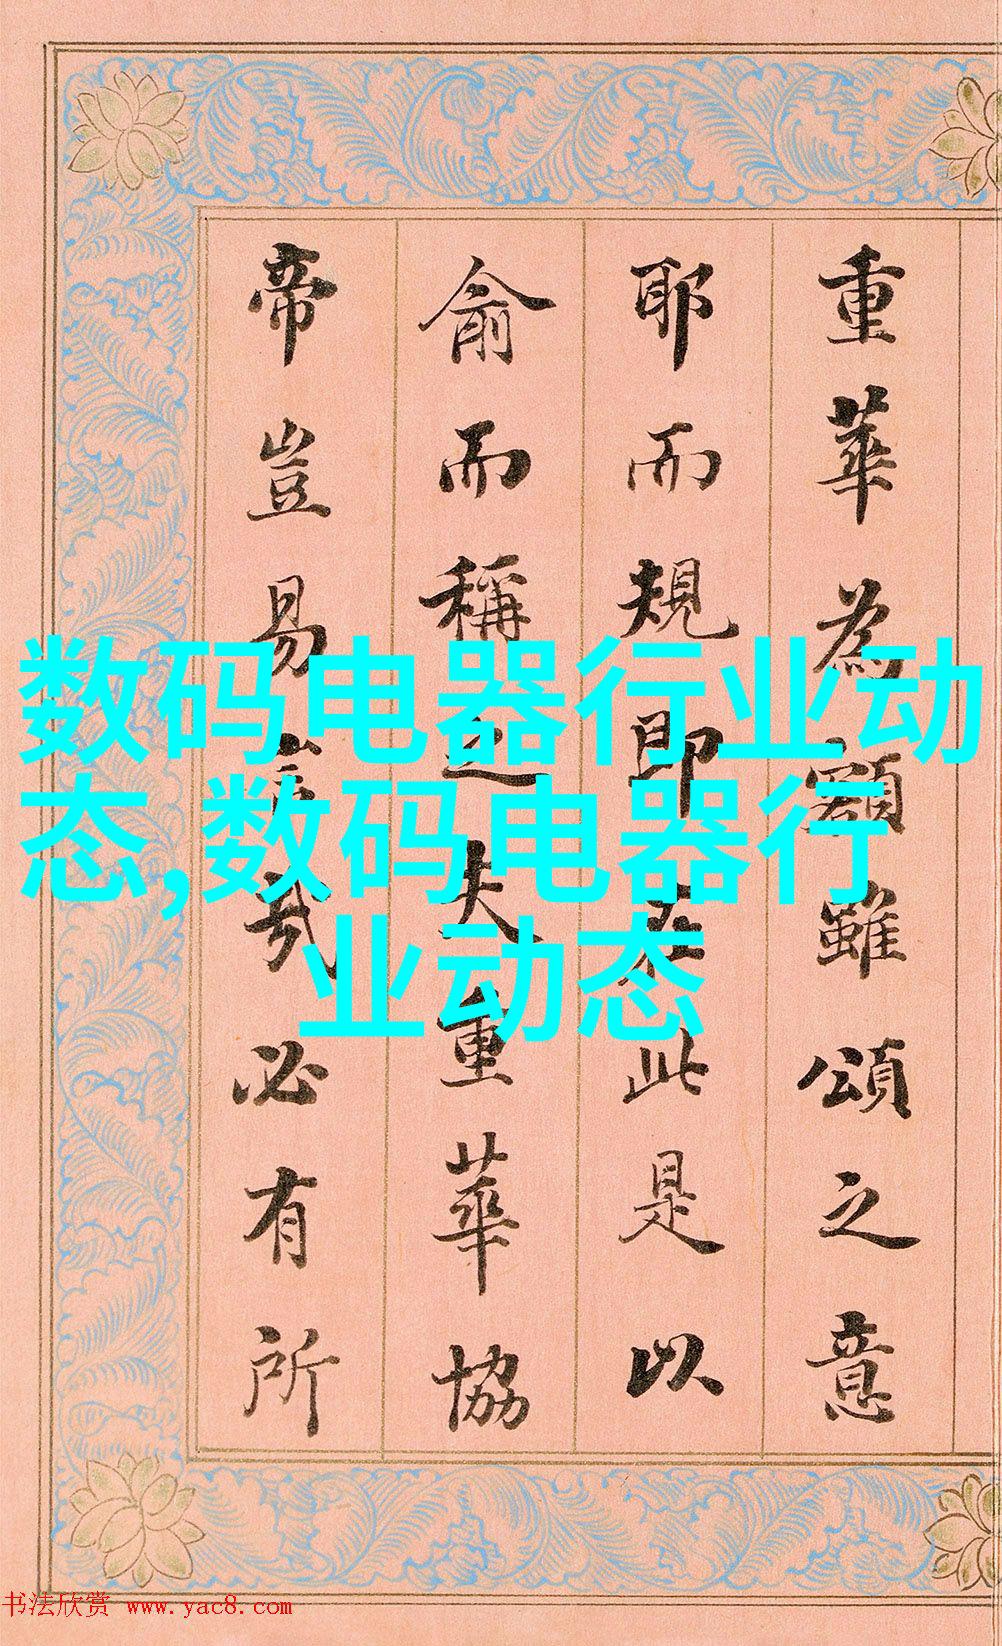 重華為額雖頌之意
耶而規即在此是以
俞而稱之夫重華協
帝豈易言哉必有所
数码电器行业动
态,数码电器行
业动态
书法欣赏 www.yac8.com